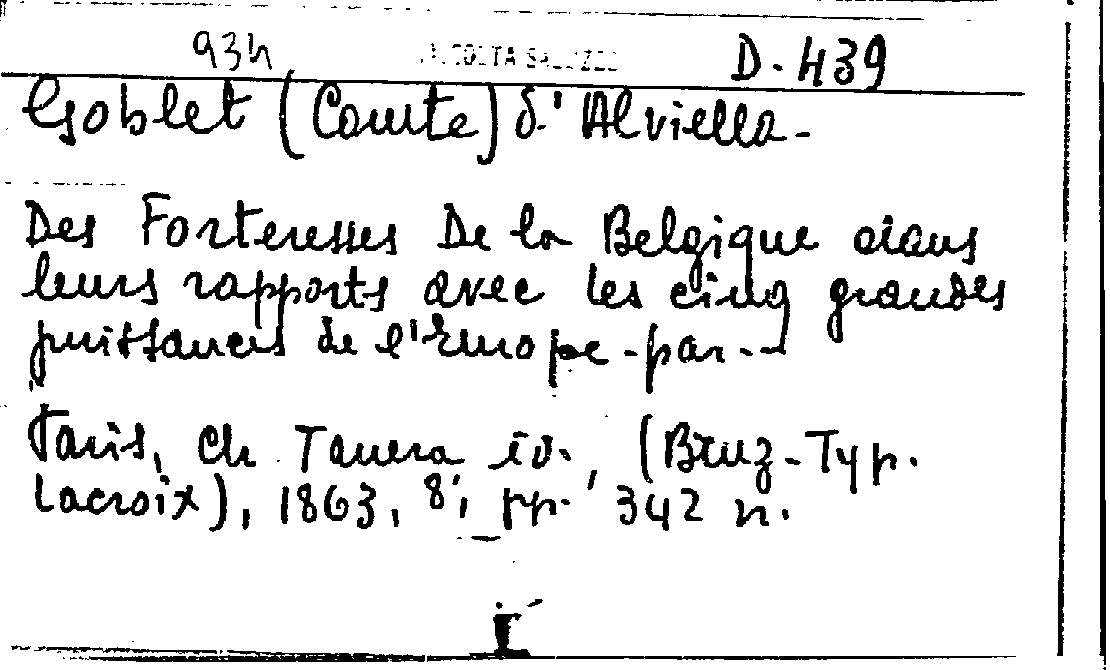 93h RACCOLTA SALUZZO D. 439
Goblet (Comte) d'Alviella -
Des Forteresses De la Belgique dans
leurs rapports avec les cinq grandes
puissances de l'Europe - par ---
Paris, Ch Tanera éd., (Brux - Typ.
Lacroix), 1863, 8°, pp. 342 n.